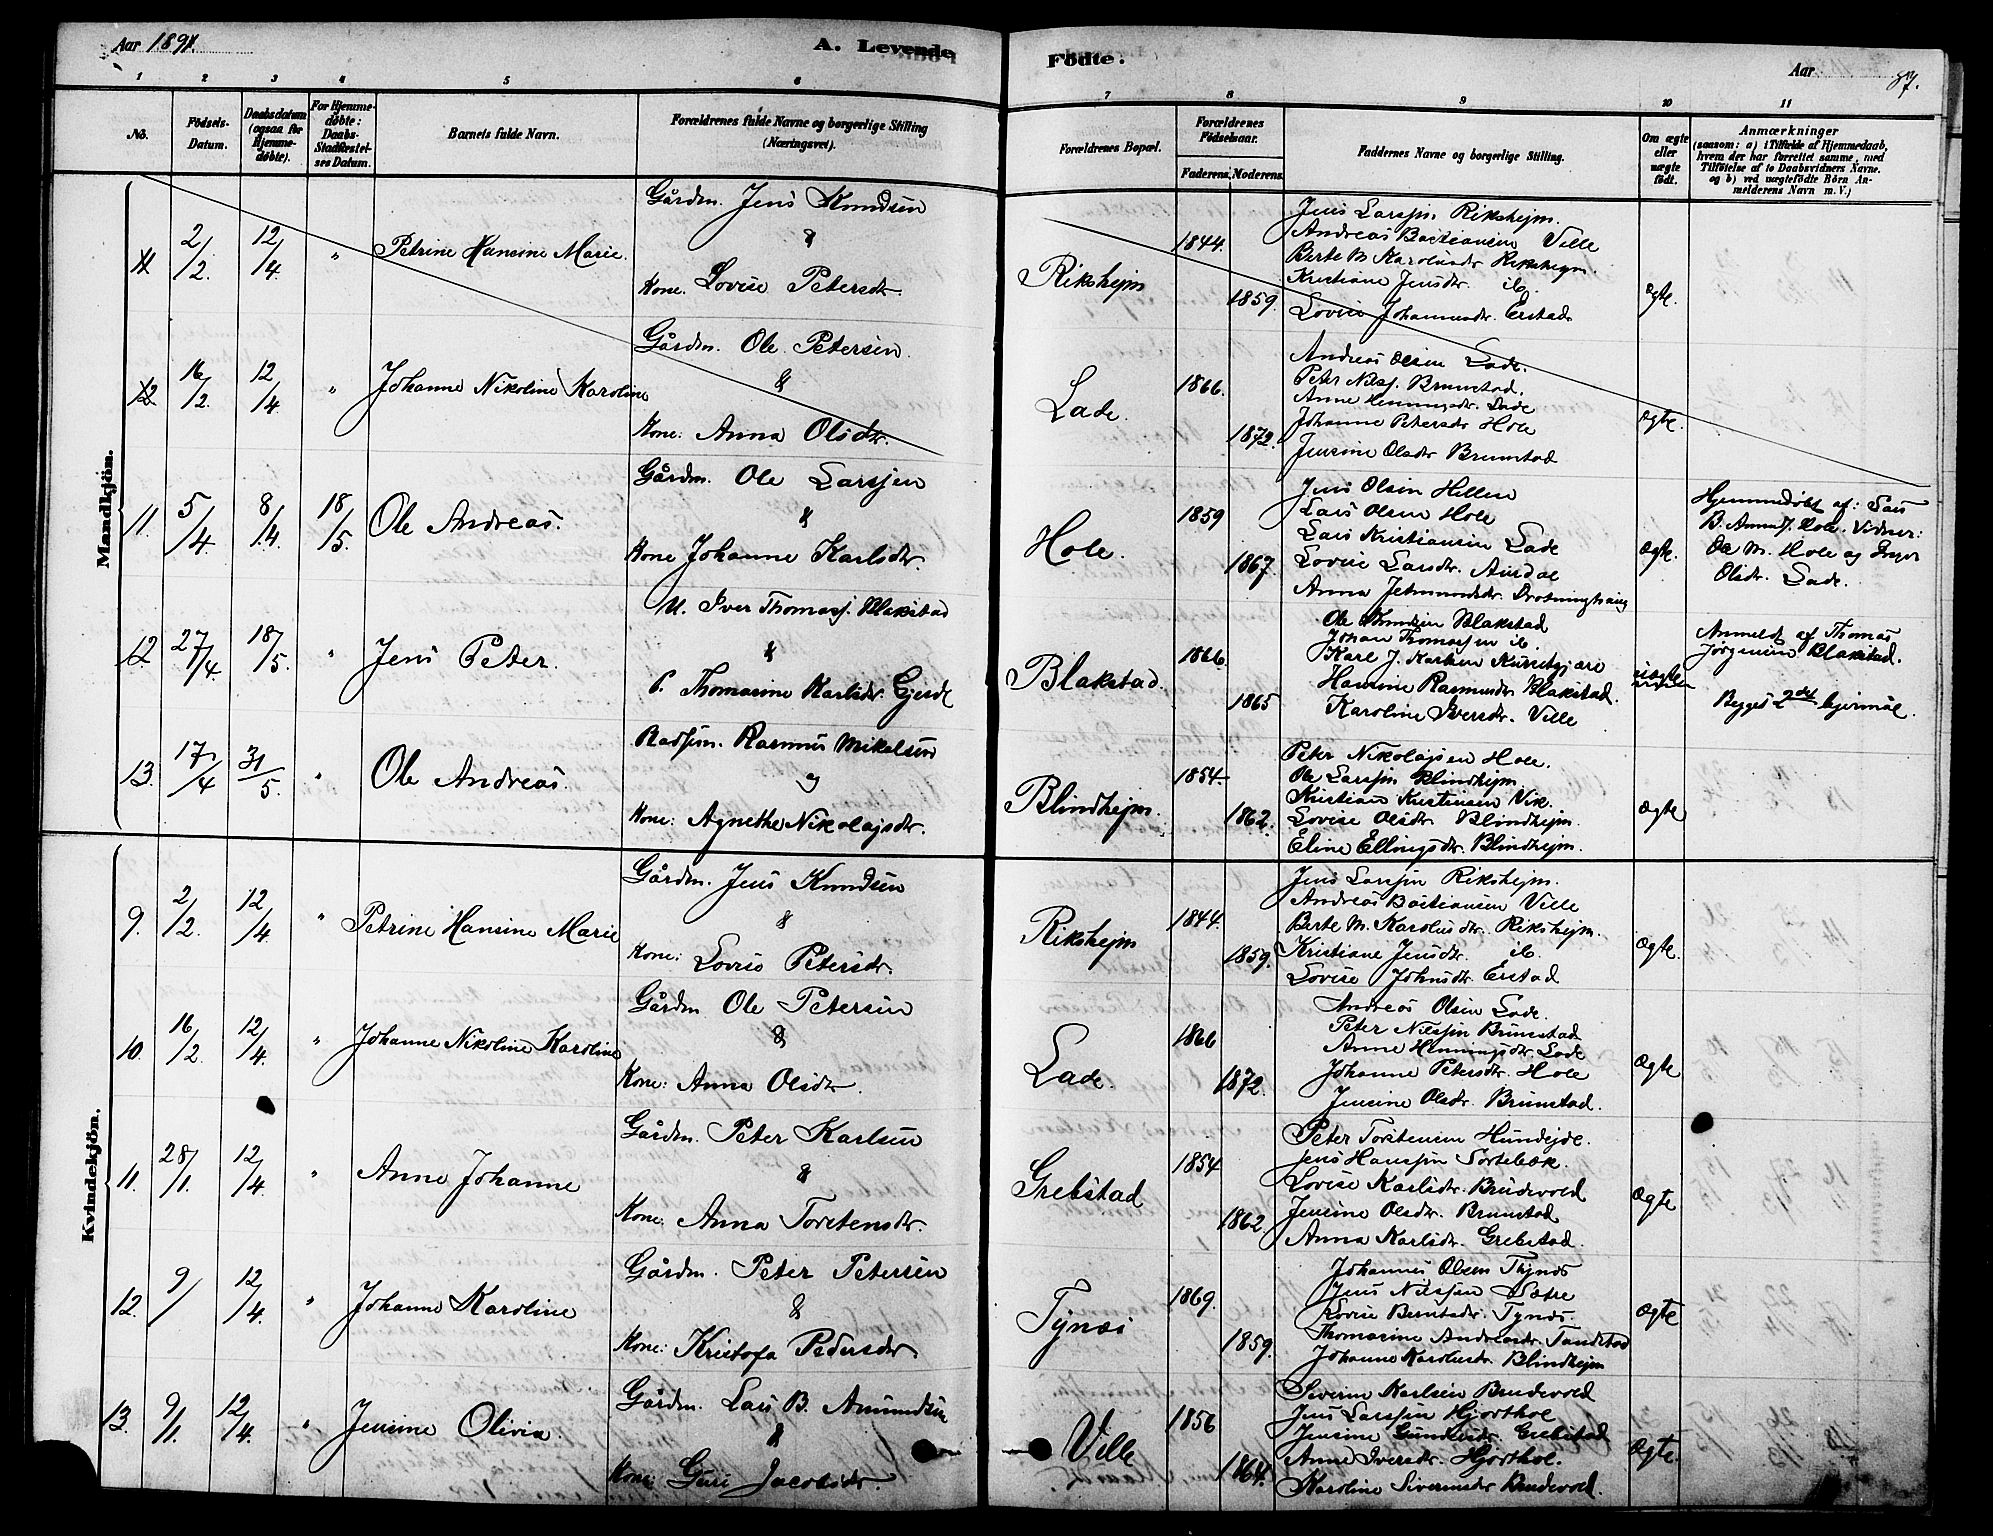 Aar 1891.
A. Levende Födte.
Aar
87.
1 2 3 4 5 6 7 8 9 10 11
No.
Födsels-Datum.
Daabsdatum (ogsaa for Hjemmedöbte).
For Hjemmedöbte: Daabs-Stadfæstelses Datum.
Barnets fulde Navn.
Forældrenes fulde Navne og borgerlige Stilling (Næringsvei).
Forældrenes Bopæl.
Forældrenes Födselsaar.
Faderens. Moderens.
Faddernes Navne og borgerlige Stilling.
Om ægte eller uægte födt.
Anmærkninger (saasom: a) i Tilfælde af Hjemmedaab, hvem der har forrettet samme, med Tilföielse af to Daabsvidners Navne, og b) ved uægtefödte Börn Anmelderens Navn m. V.)
Mandkjön.
11 2/2. 12/4 " Petrine Hansine Marie.
Gårdm. Jens Knudsen
&
Kone. Lovise Petersdtr.
Rikshejm
1844.
1859.
Jens Larssen Rikshejm.
Andreas Bastiansen Ville
Berte M. Karolusdtr. Rikshejm.
Kristiane Jensdtr. ib.
Lovise Johannesdtr. Erstad
Ægte.
12 16/2. 12/4 " Johanne Nikoline Karoline
Gårdm. Ole Petersen.
&
Kone: Anna Olsdtr.
Lade.
1866.
1872.
Andreas Olsen Lade.
Peter Nilsj. Brunstad.
Anne Henningsdtr. Lade
Johanne Petersdtr Hole
Jensine Olsdtr Brunstad
Ægte.
11. 5/4 8/4. 18/5. Ole Andreas.
Gårdm. Ole Larsjen
&
Kone Johanne Karlsdtr.
Hole.
1859
1867.
Jens Olsen Hellen
Lars Olsen Hole
Lars Kristiansen Lade
Lovise Larsdtr. Aurdal
Anna Jetmundsdtr. Drotninghaug
Ægte.
Hjemmedøbt af: Lars
B. Anna J. Hole. Vidner:
Ole M. Hole og Inger
Olsdtr. Lade.
12 27/4. 18/5. " Jens Peter.
U. Iver Thomasj. Blakstad
&
P. Thomasine Karlsdtr. Gjerde
Blakstad.
1866.
1865
Ole Knudsen Blakstad
Johan Thomassen ib.
Karl J. Karlsen
Hansine Rasmusdtr Blakstad.
Karoline Iversdtr. Ville
uægte
Anmeldt af Thomas
Jørgensen Blakstad.
Begges 2det lejermål.
13. 17/4 31/5. " Ole Andreas.
Rasmus Mikalsen
og
Kone: Agnethe Nikolajsdtr.
Blindhejm.
1854.
1862.
Peter Nikolajsen Hole.
Ole Larssen Blindhejm.
Kristian Kristiansen Vik.
Lovise Olsdtr. Blindhejm.
Eline Ellingsdtr. Blindhejm.
Ægte
Kvindekjön.
9. 2/2. 12/4. " Petrine Hansine Marie
Gårdm. Jens Knudsen
&
Kone: Lovise Petersdtr.
Rikshejm
1844.
1859.
Jens Larssen Rikshejm.
Andreas Bastiansen Ville
Berte M. Karolusdtr. Rikshejm.
Kristiane Jensdtr. ib.
Lovise Johnsdtr. Erstad
Ægte.
10. 16/2. 12/4. " Johanne Nikoline Karoline
Gårdm Ole Petersen
&
Kone: Anna Olsdtr.
Lade.
1866
1872.
Andreas Olsen Lade.
Peter Nilsjen Brunstad
Anne Henningsdtr Lade
Johanne Petersdtr. Hole
Jensine Olsdtr. Brunstad.
Ægte
11. 28/1. 12/4. " Anne Johanne
Gårdm. Peter Karlsen
&
Kone: Anna Torstensdtr.
Grebstad
1854
1862
Peter Torstensen Hundejde.
Jens Hanssen Sortebæk.
Lovise Karlsdtr. Brudevold
Jensine Olsdtr. Brunstad
Anna Karlsdtr. Grebstad.
Ægte
12. 9/ 12/4. " Johanne Karoline
Gårdm. Peter Petersen
&
Kone: Kristofa Pedersdtr.
Tynæs
1869.
1859.
Johannes Olsen Tynæs
Jens Nilsjen Sætre
Lovise Berntsdtr. Tynæs.
Thomasine Andreasdtr. Tandstad
Johanne Karolusdtr. Blindhejm
Ægte
13. 9/1. 12/4. " Jensine Olivia
Gårdm. Lars B. Amundsen
&
Kone: Guri Jacobsdtr.
Ville
1856
1864.
Severin Karlsen Brudevold
Jens Larssen Hjorthol
Jensine Gundersdtr. Grebstad
Anne Iversdtr. Hjorthol.
Karoline Severinsdtr Brudevold.
Ægte